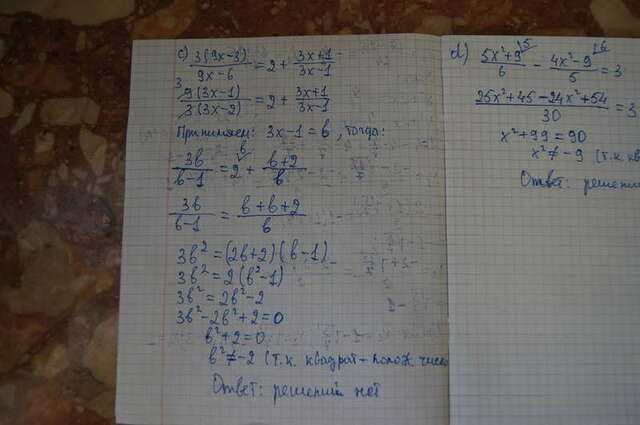 c) 3(9x-3)/9x-6 = 2 + 3x+1/3x-1
9(3x-1)/3(3x-2) = 2 + 3x+1/3x-1
Принимаем: 3x-1 = b, тогда:
3b/b-1 = 2 + b+2/b
3b/b-1 = b+b+2/b
3b² = (2b+2)(b-1)
3b² = 2(b²-1)
3b² = 2b²-2
3b²-2b²+2=0
b²+2=0
b² ≠ -2 (т.к. квадрат - полож. число
Ответ: решений нет
d) 5x²+9/6 - 4x²-9/5 = 3
25x²+45-24x²+54/30 = 3
x²+99 = 90
x² ≠ -9 (т.к. кв
Ответ: решений